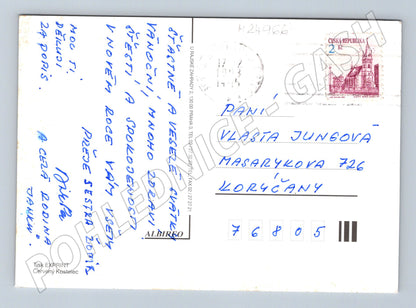 H24966
ČESKÁ REPUBLIKA
2 Kč
ŠŤASTNÉ A VESELÉ SVÁTKY
VÁNOČNÍ, MNOHO ZDRAVÍ
ŠTĚSTÍ A SPOKOJENOSTI
V NOVÉM ROCE VÁM VŠEM
PŘEJE SESTRA
A CELÁ RODINA
MOC TI
DĚKUJI
ZA DOPIS.
PANÍ
VLASTA JUNGOVÁ
MASARYKOVA 726
KORYČANY
76805
ALBIREO
Tisk EXPRINT
Červený Kostelec
POHLEDNICE-GASH